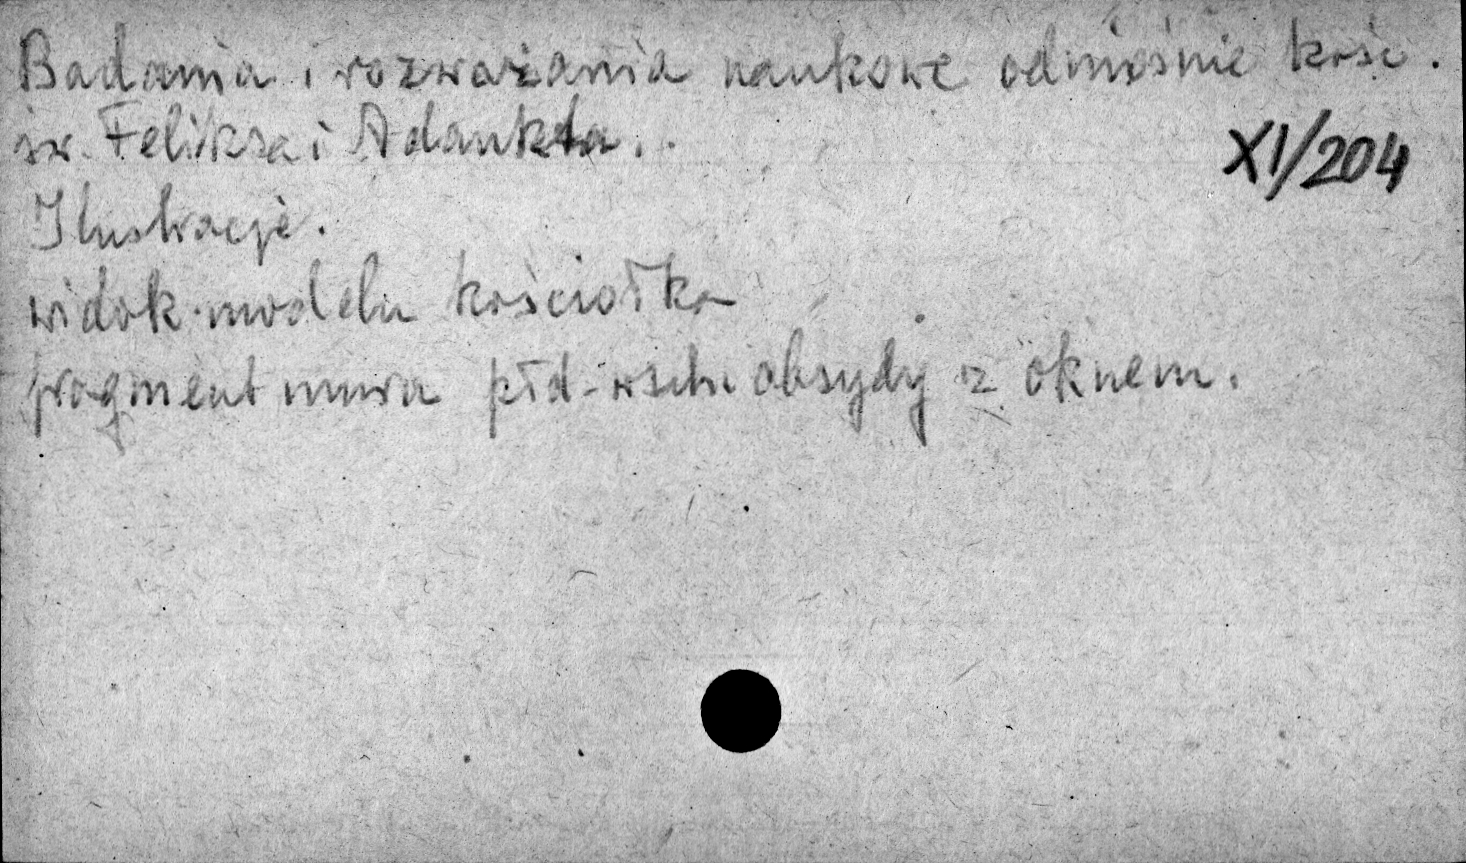 Badania i rozważania naukowe odnośnie kość.
św. Feliksa i Adaukta.
XI/204
Ilustracje.
widok modelu kościołka
fragment muru płd-wsch absydy z oknem.